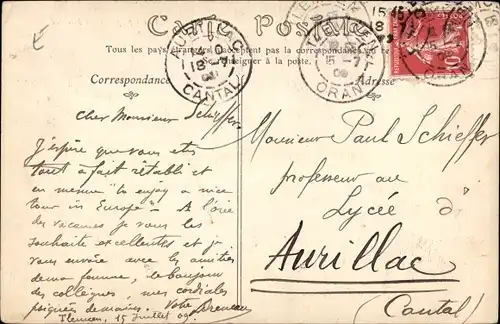 Carte Postale
Tous les pays étrangers n'acceptent pas la correspondance au
se renseigner à la poste.
Correspondance
Adresse
AURILLAC
18 -7
CANTAL
TLEMCEN
15 -7
09
ORAN
10
Cher Monsieur Schieffer
J'espère que vous êtes
tout à fait rétabli et
en mesure "to enjoy a nice
tour in Europe" - A l'orée
des vacances je vous les
souhaite excellentes et je
vous envoie avec les amitiés
de ma femme, le bonjour
des collègues, mes cordiales
poignées de mains. Votre
Tlemcen, 15 Juillet 09.
Monsieur Paul Schieffer
professeur au
Lycée d'
Aurillac
(Cantal)